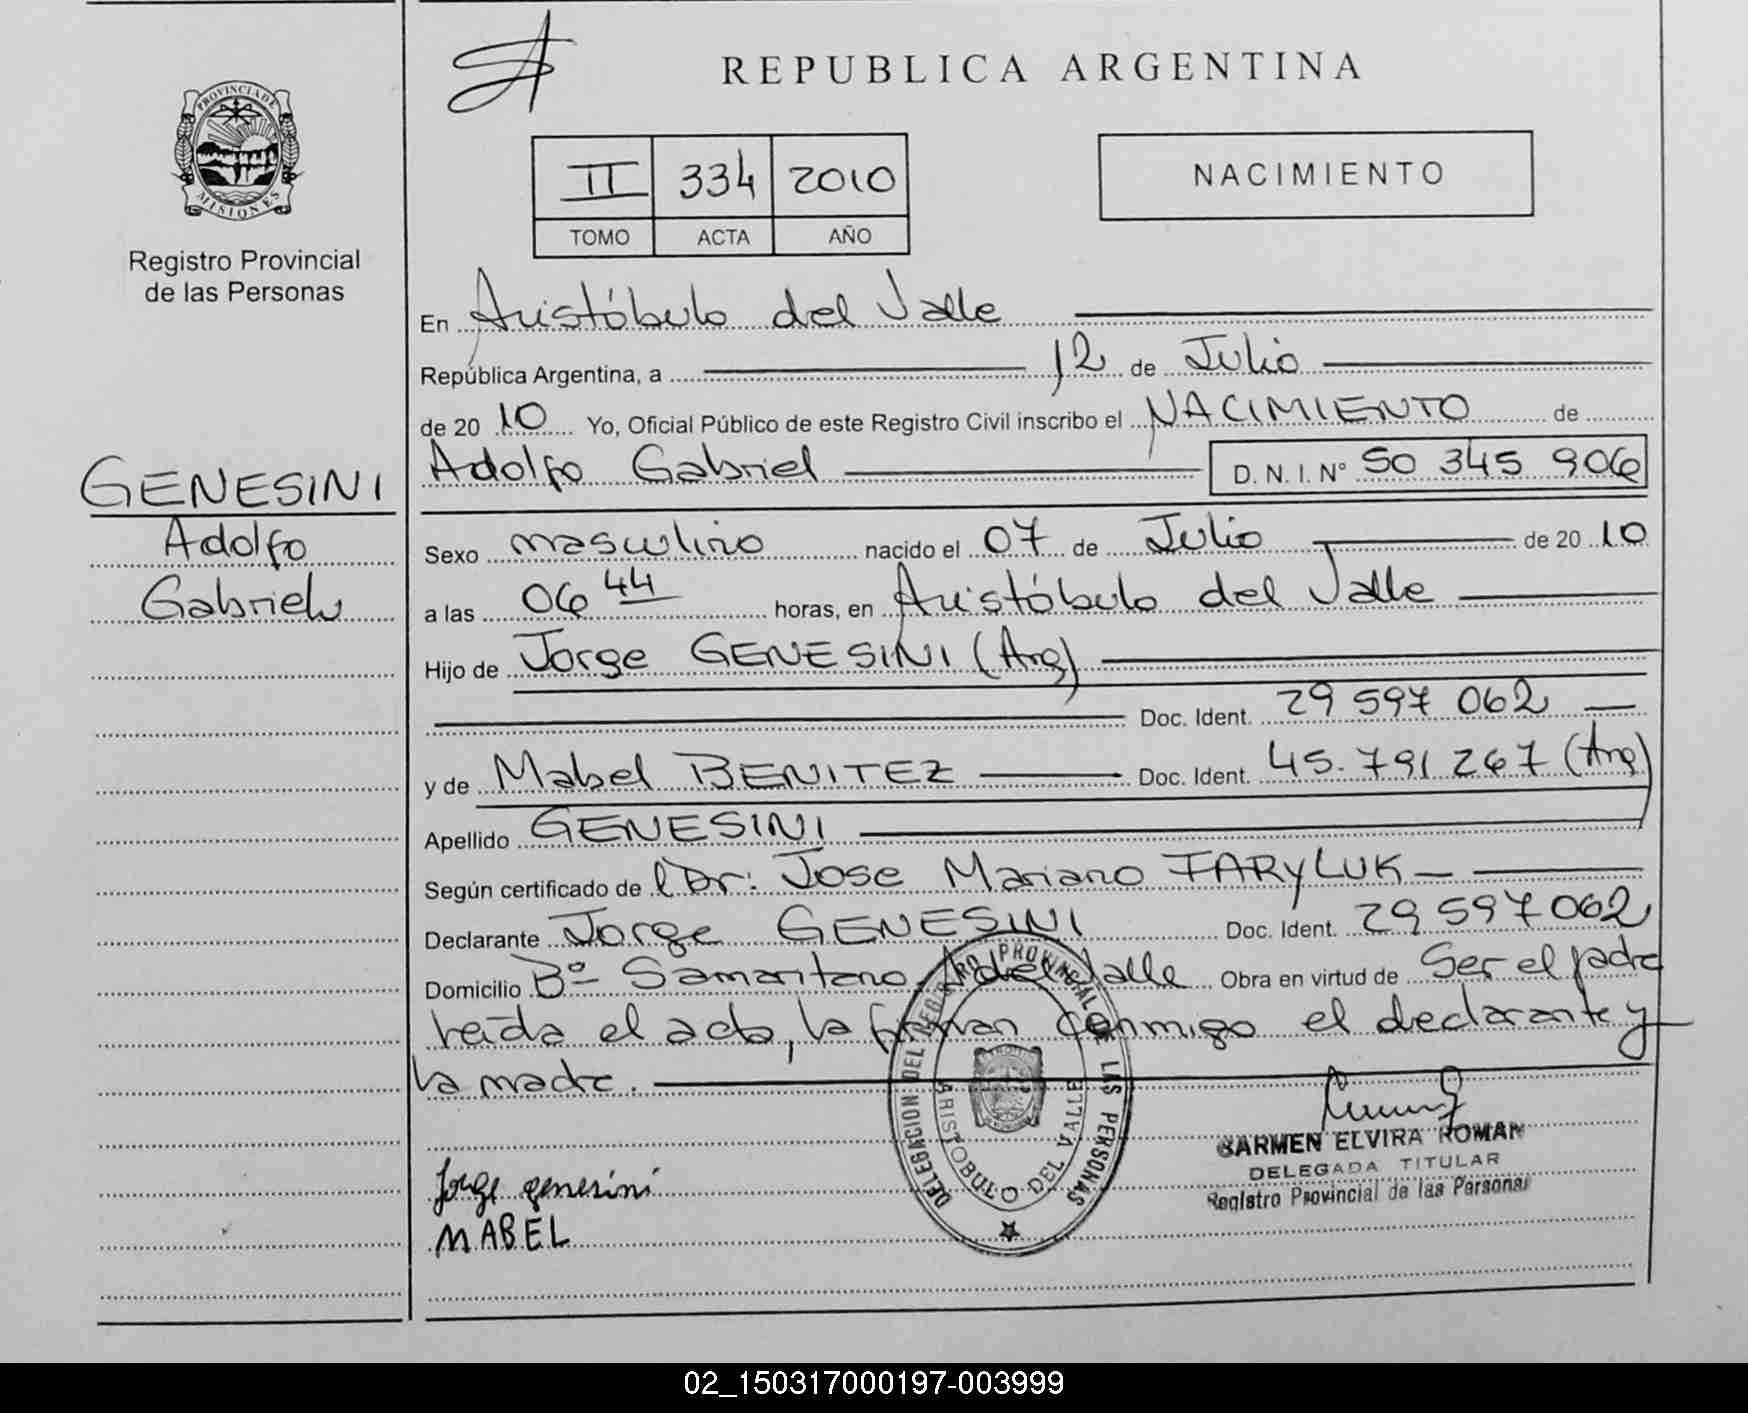 REPUBLICA ARGENTINA
PROVINCIA DE
MISIONES
Registro Provincial
de las Personas
II 334 2010
TOMO ACTA AÑO
NACIMIENTO
En Aristóbulo del Valle
República Argentina, a 12 de Julio
de 20 10 Yo, Oficial Público de este Registro Civil inscribo el NACIMIENTO de
Adolfo Gabriel D.N.I. N° 50 345 906
GENESINI
Adolfo
Gabriel
Sexo masculino nacido el 07 de Julio de 20 10
a las 06 44 horas, en Aristóbulo del Valle
Hijo de Jorge GENESINI (Arg)
Doc. Ident. 29 597 062
y de Mabel BENITEZ Doc. Ident. 45.791 267 (Arg)
Apellido GENESINI
Según certificado de l Dr: Jose Mariano FARYLUK
Declarante Jorge GENESINI Doc. Ident. 29 597 062
Domicilio B° Samaritano A del Valle Obra en virtud de Ser el padre
leida el acta, la firman conmigo el declarante y
la madre.
DELEGACION DEL REGISTRO PROVINCIAL DE LAS PERSONAS
ARISTOBULO DEL VALLE
CARMEN ELVIRA ROMAN
DELEGADA TITULAR
Registro Provincial de las Personas
Jorge genesini
MABEL
02_150317000197-003999